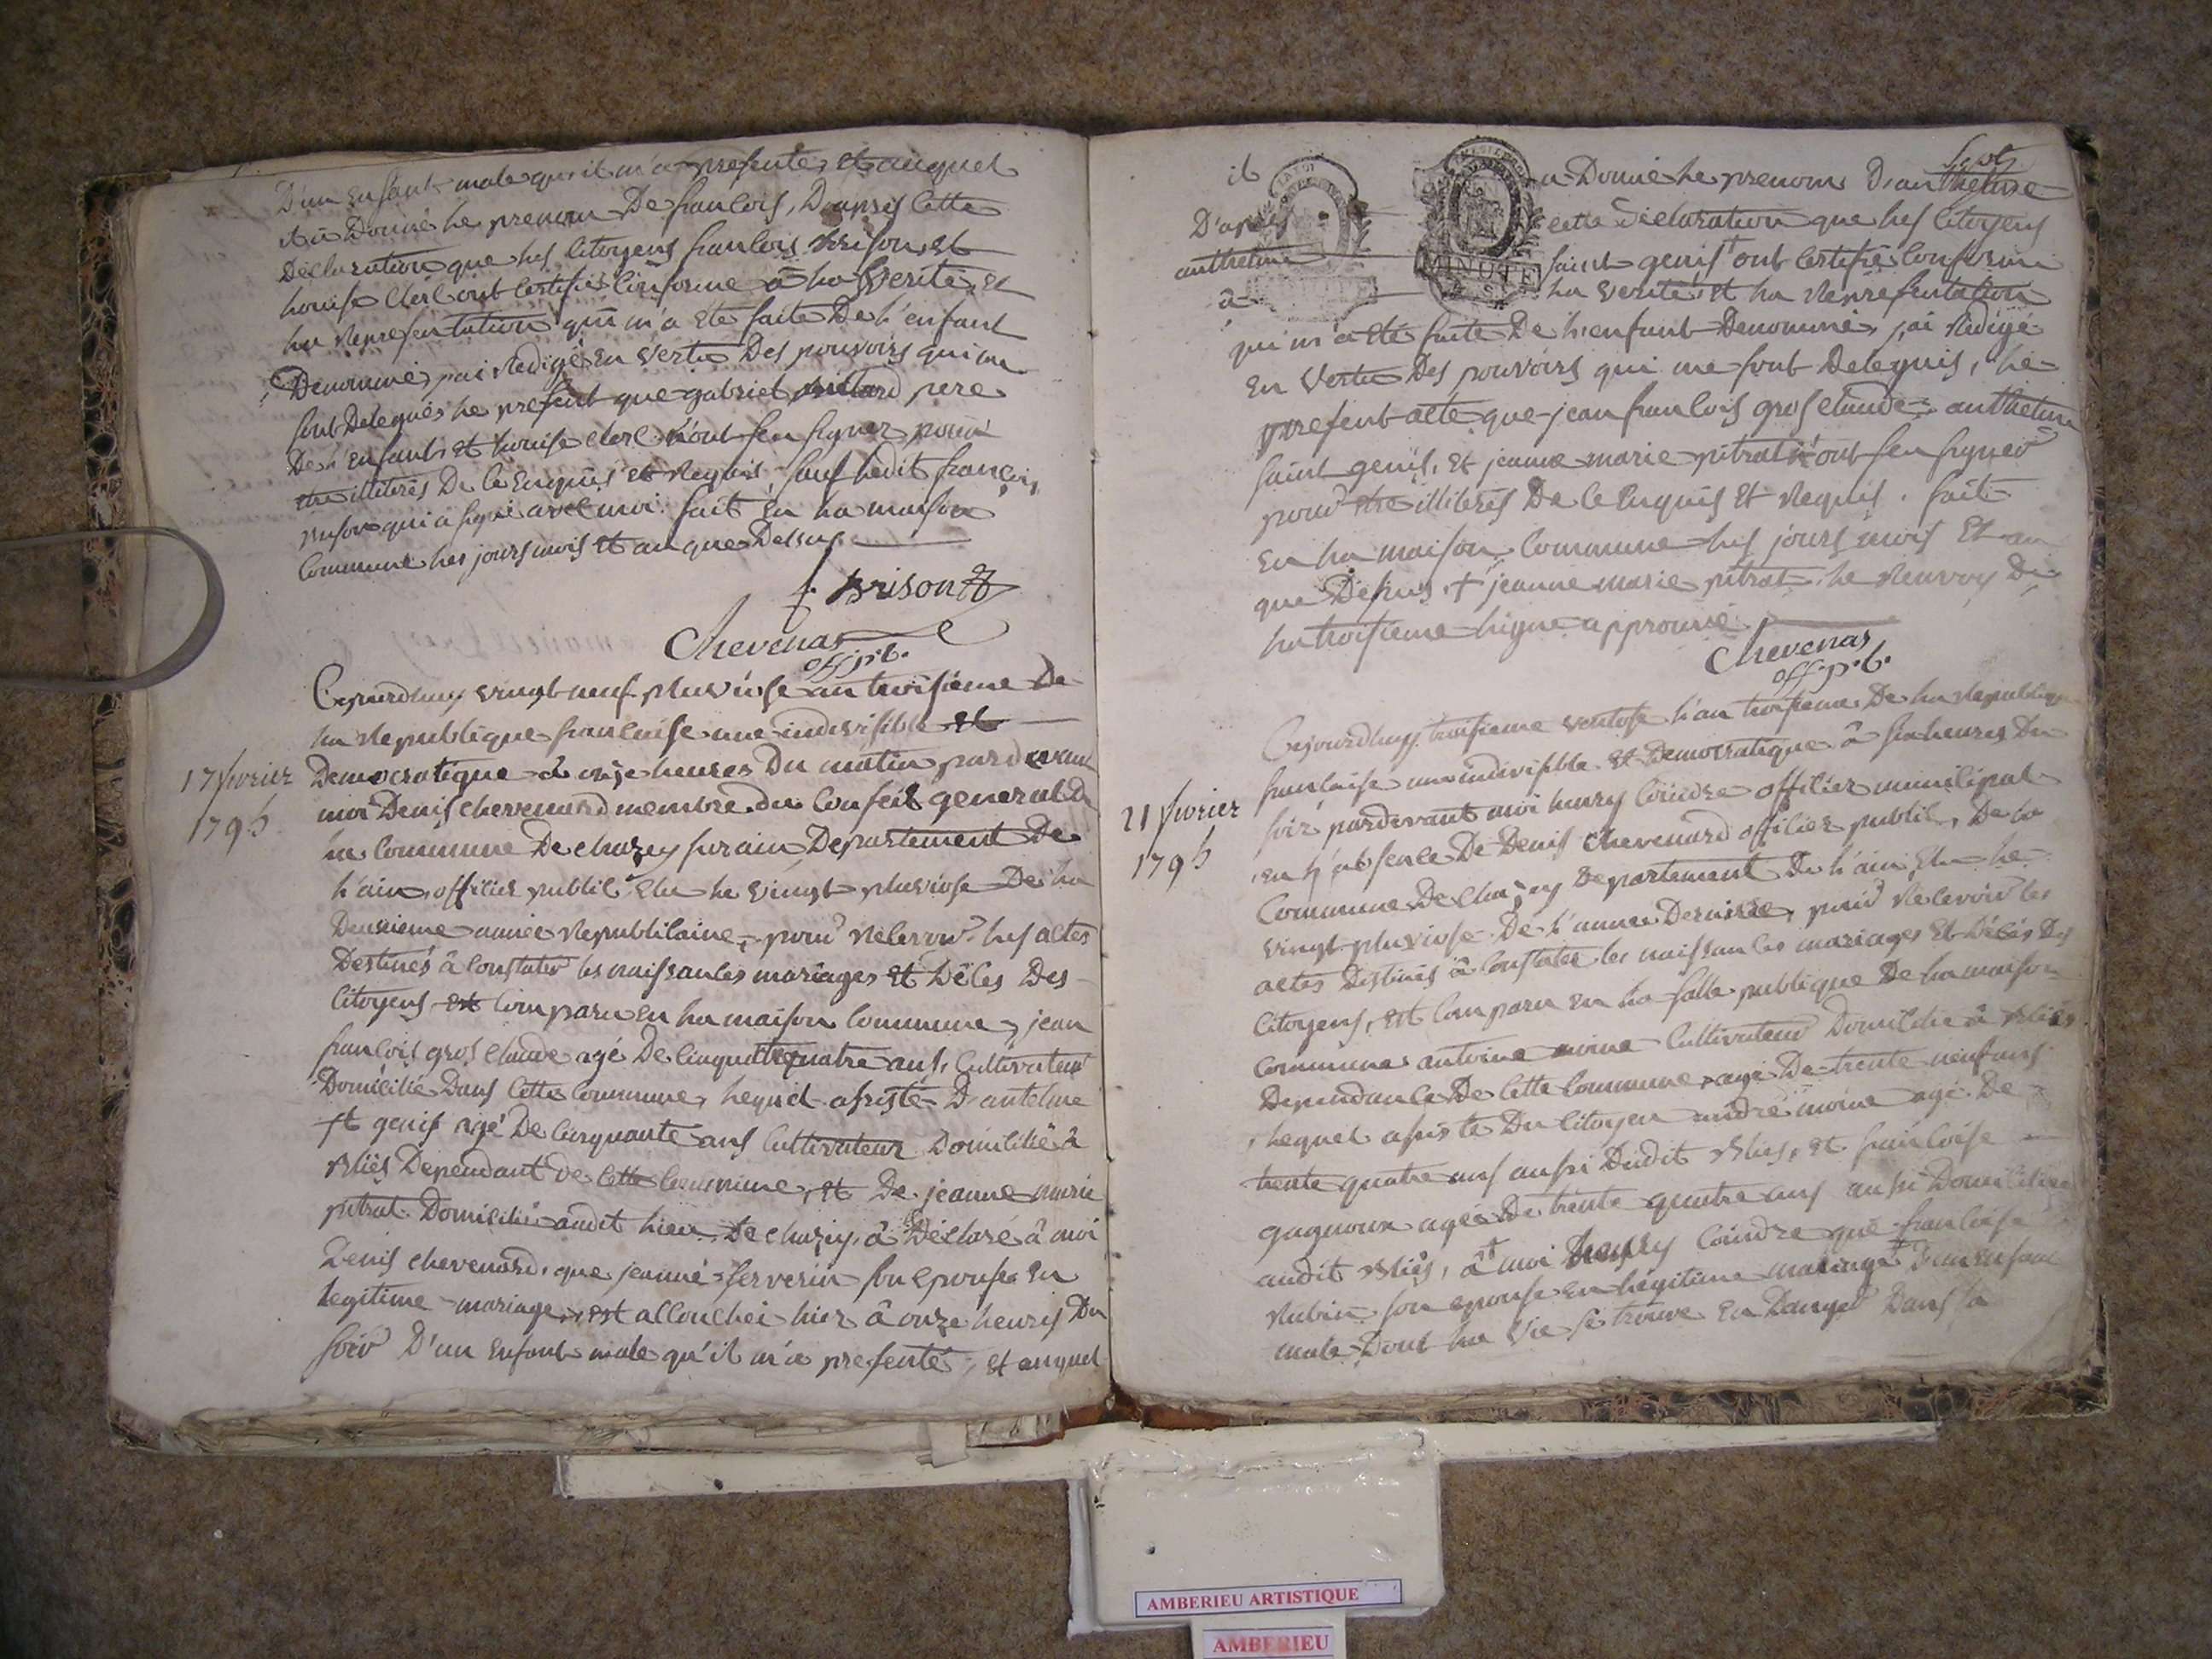 D'un enfant male qu'il m'a presenté, et auquel
il a Donné le prenom De francois, D'apres cette
Declaration que les citoyens francois brison et
louise clerc ont certifiés conforme à la verité, et
la representation qui m'a été faite De l'enfant
Denommé, j'ai redigé en vertu Des pouvoirs qui me
sont Delegués le present que gabriel pere
De l'enfant et louise clerc n'ont seu signer pour
etre illiterés De ce enquis et requis, sauf ledit francois
brison qui a signé avec moi. fait en la maison
Commune les jours mois et an que Dessus.
f. Brison
Chevenas
off. p. b.
17 fevrier
1795
Cejourdhuy vingt neuf pluviose an troisieme De
la republique francaise une indivisible et
Democratique à onze heures Du matin pardevant
moi Denis chevenard membre du conseil general De
la commune De chazey sur ain Departement De
l'ain, officier public elu le vingt pluviose De la
Deuxieme année republicaine, pour recevoir les actes
Destinés à constater les naissances mariages et Décès Des
citoyens, est comparu en la maison commune, jean
francois gros claude agé De cinquante quatre ans, cultivateur
Domicilié Dans cette commune, lequel assisté D'antelme
st genis agé De cinquante ans cultivateur Domicilié à
rliès Dependant de cette commune, et De jeanne marie
pitrat Domicilié audit lieu De chazey, à Declaré à moi
Denis chevenard, que jeanne serverin son epouse en
legitime mariage, est accouchée hier à onze heures Du
soir D'un enfant male qu'il m'a presenté, et auquel
il a Donné le prenom D'anthelme
D'après cette Declaration que les citoyens
anthelme saint genis + ont certifié conforme
à la verité, et la representation
qui m'a été faite De l'enfant Denommé, j'ai redigé
en vertu Des pouvoirs qui me sont Delegués, le
present acte que jean francois gros claude, anthelme
saint genis, et jeanne marie pitrat n'ont seu signer
pour etre illiterés De ce enquis et requis. fait
en la maison commune les jours mois et an
que Dessus. + jeanne marie pitrat. le renvoy De
la troisieme ligne approuvé.
Chevenas
off. p. b.
21 fevrier
1795
Cejourdhuy troisieme ventose l'an troisieme De la republique
francaise une indivisible et Democratique à six heures Du
soir pardevant moi henry coindre officier municipal
en l'absence De Denis chevenard officier public, De la
Commune De chazey Departement De l'ain, elu le
vingt pluviose De l'année Derniere, pour recevoir les
actes Destinés à constater les naissances mariages et Décès Des
citoyens, est comparu en la salle publique De la maison
commune antoine moine cultivateur Domicilié à rliès
Dependance De cette commune, agé De trente neuf ans
lequel assisté Du citoyen andré moine agé De
trente quatre ans aussi Dudit rliès, et francoise
gagnoux agée De trente quatre ans aussi Domiciliée
audit rliès, à + moi henry coindre que francoise
rubin son epouse en legitime mariage + D'un enfant
male Dont la vie se trouve en Danger Dans sa
MINUTE
AMBERIEU ARTISTIQUE
AMBERIEU